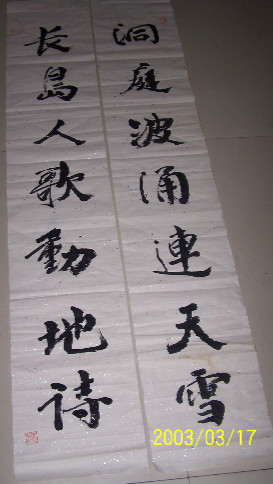 洞庭波涌連天雪
長島人歌動地诗
2003/03/17